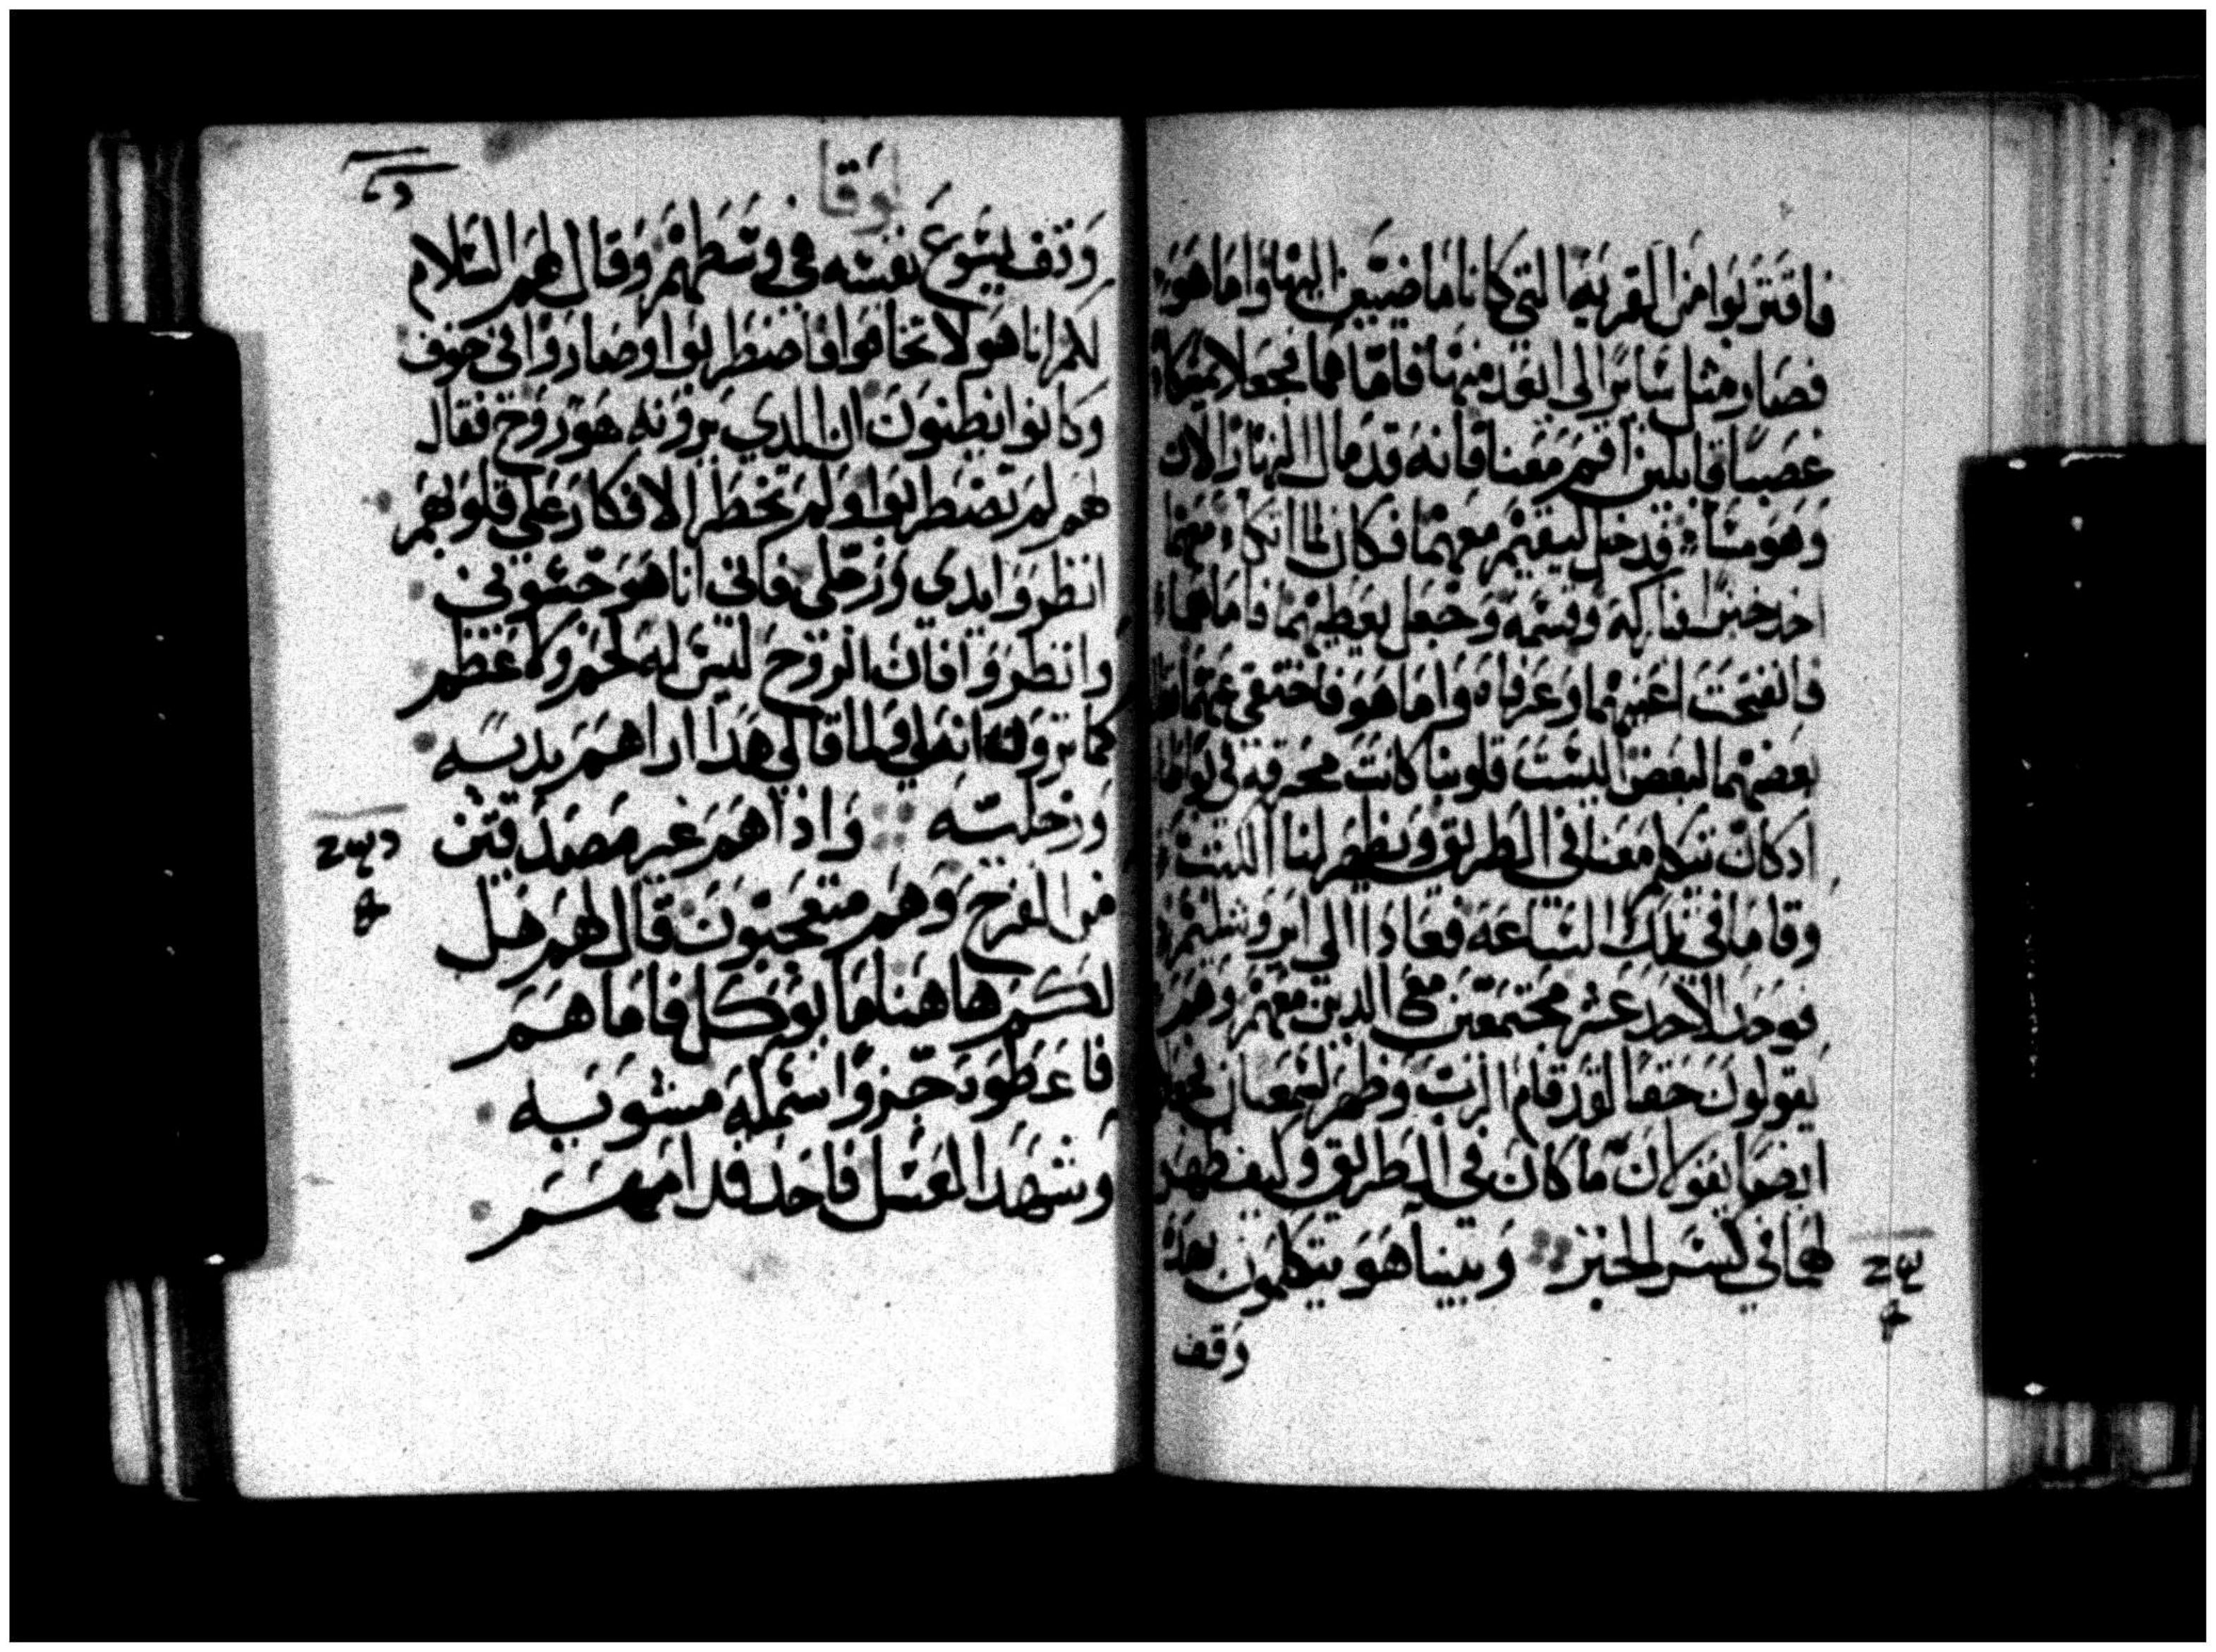 فاقتربوا من القرية التي كانا ماضيين اليها واما هو
فصار مثل سائرا الي ابعد منها فاما هما فجعلا يمسكاه
غصبا قايلين اقم معنا فانه قد مال النهار الان
وهو مساء فدخل ليقيم معهما فكان لما اتكاء معهما
اخد خبزا فباركه وقسمه وجعل يعطيهما فاما هما
فانفتحت اعينهما وعرفاه واما هو فاختفي عنهما
بعضهما لبعض اليست قلوبنا كانت محرقه في
ادكان يتكلم معنا في الطريق ويظهر لنا الكتب
وقاما في تلك الساعه فعادا الي ايروشليم
فوجدا الاحد عشر مجتمعين مع الدين معهم وهم
يقولون حقا لقد قام الرب وظهر لسمعان
ايضا يقولان ما كان في الطريق وكيف ظهر
لهما في كسر الخبز وبينما هو يتكلمون بهذا
وقف
لوقا
وقف يسوع نفسه في وسطهم وقال لهم السلام
لكم انا هو لا تخافوا فاضطربوا وصاروا في خوف
وكانوا يظنون ان الدي يرونه هو روح فقال
لهم لم تضطربوا ولم تخطر الافكار علي قلوبهم
انظروا يدي ورجلي فاني انا هو جسوني
وانظروا فان الروح ليس له لحم ولا عظم
كما ترونه انه لي فلما قال هدا اراهم يديه
ورجليه وادا هم غير مصدقين
من الفرح وهم متعجبون قال لهم هل
لكم هاهنا ما يوكل فاما هم
فاعطوه جزوا سمكه مشويه
وشهد العسل فاخد قدامهم